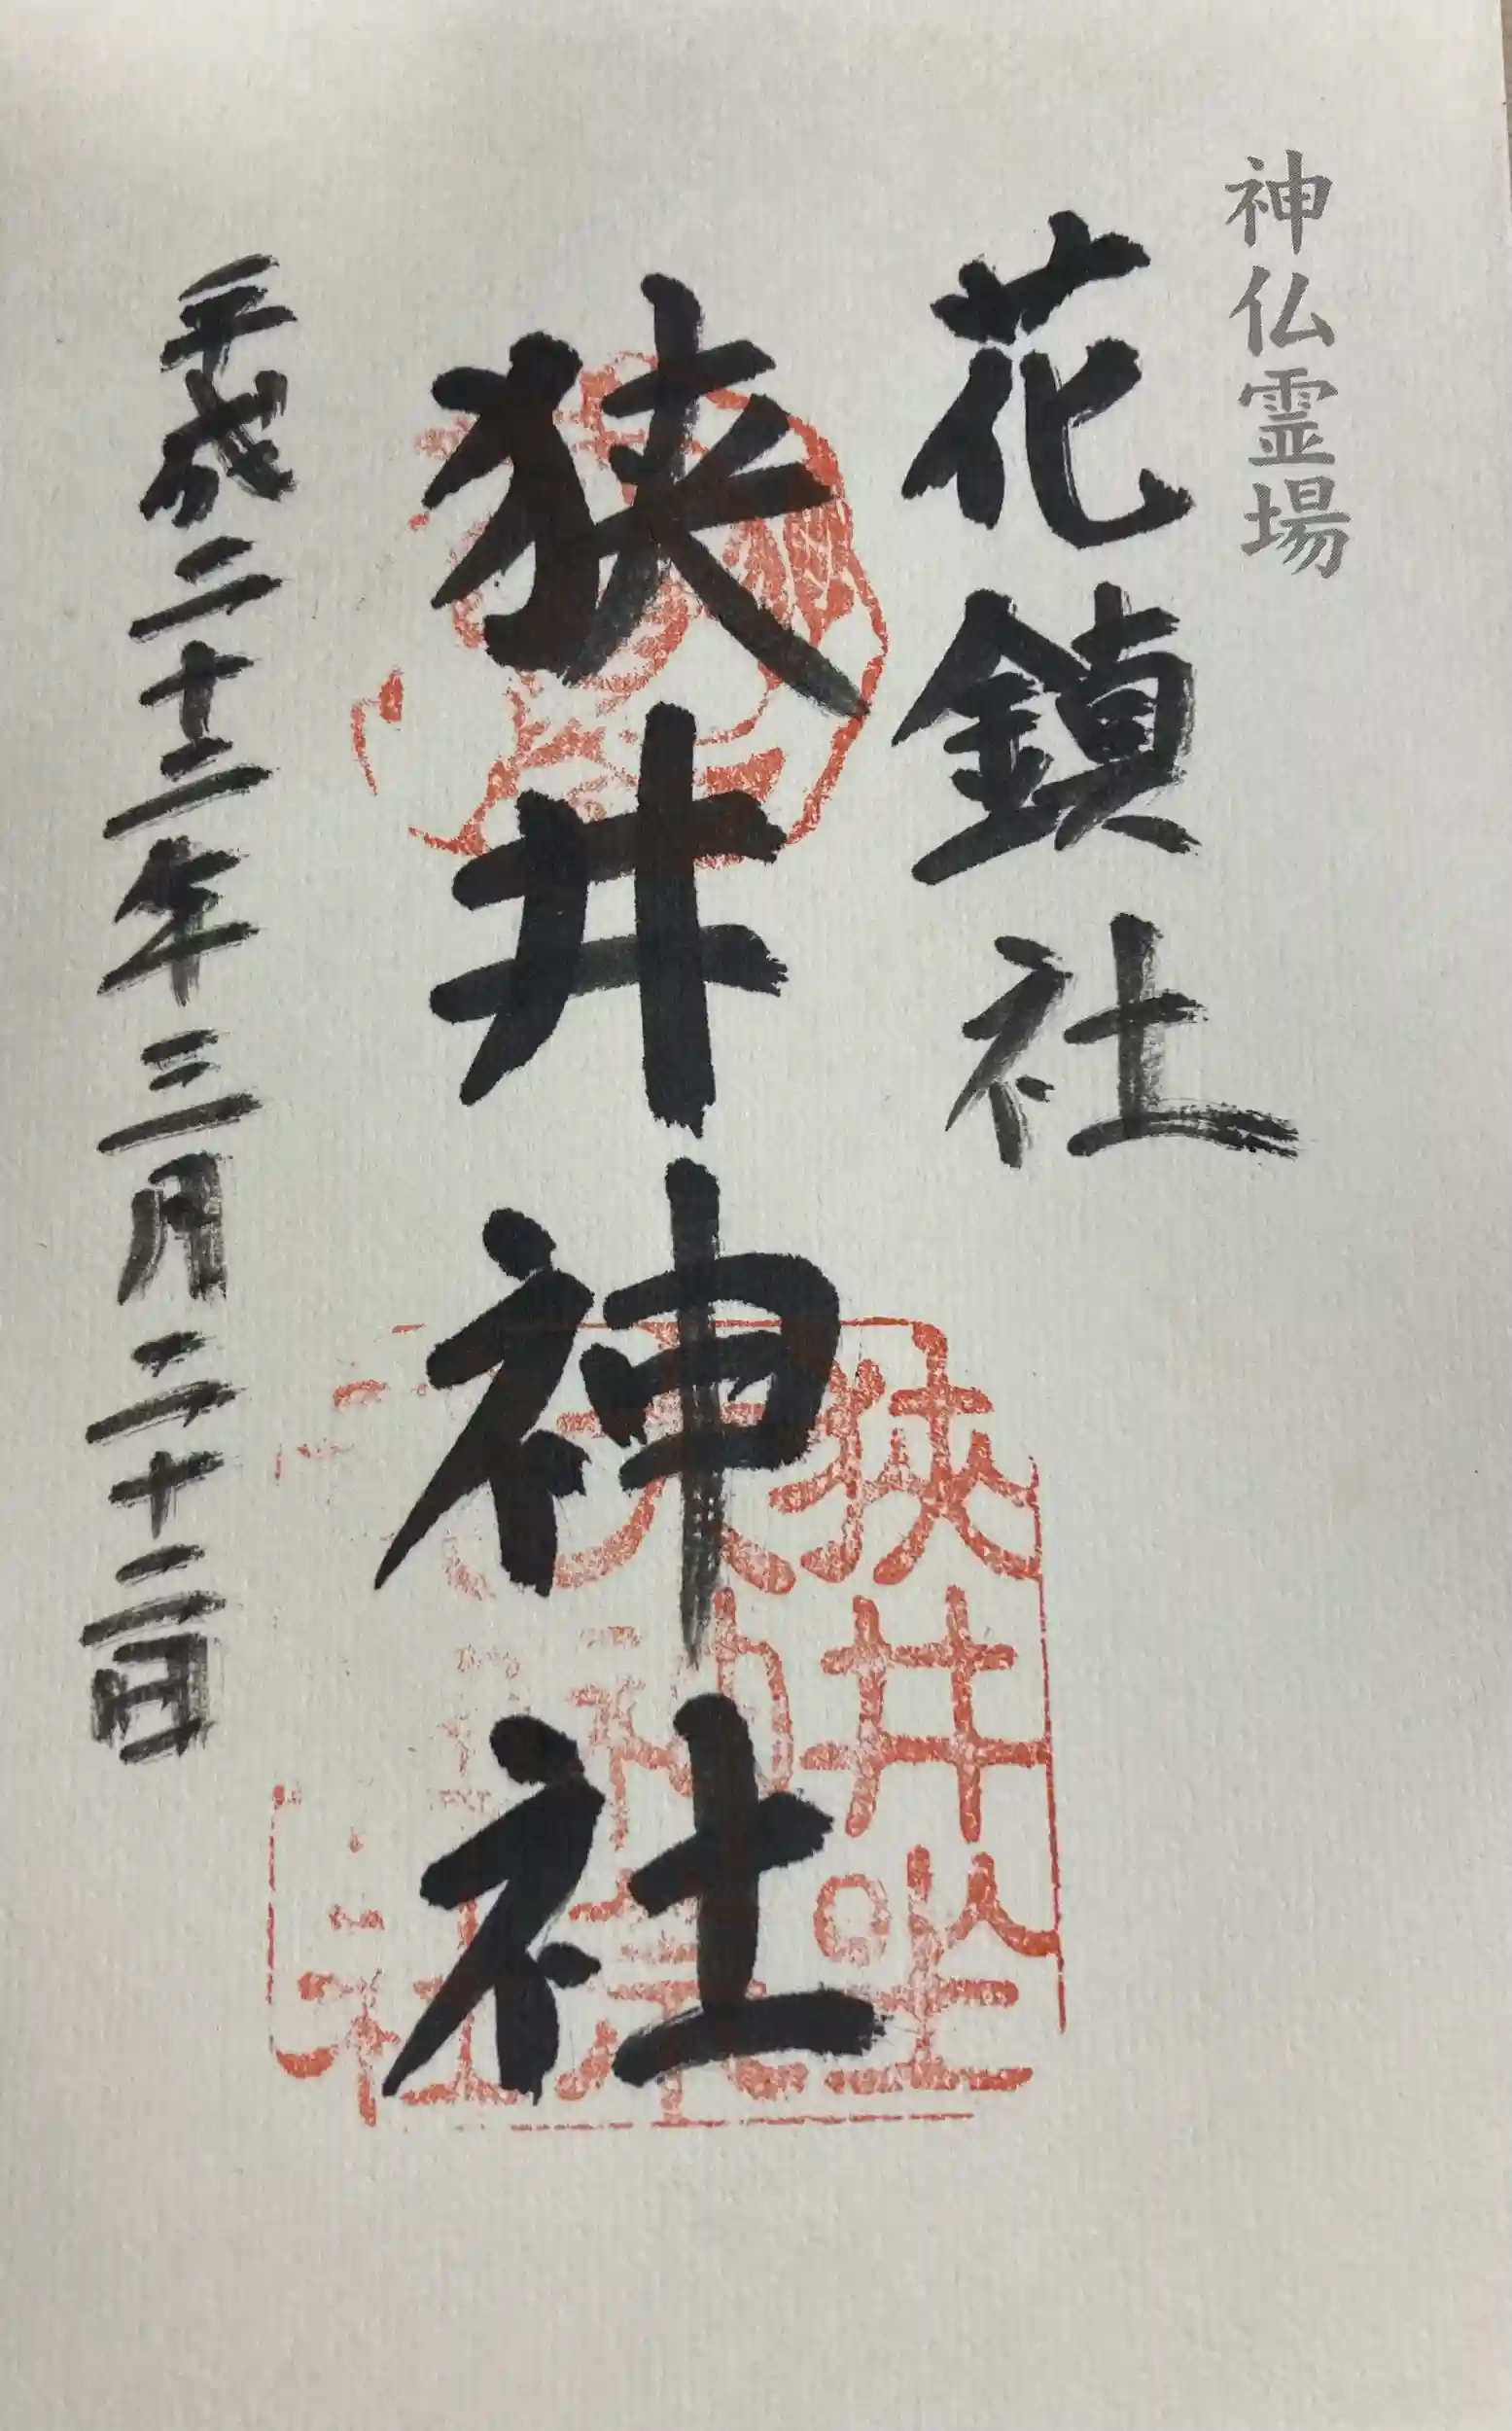 神仏霊場
花鎮社
狭井神社
平成二十二年三月二十二日
狹井坐